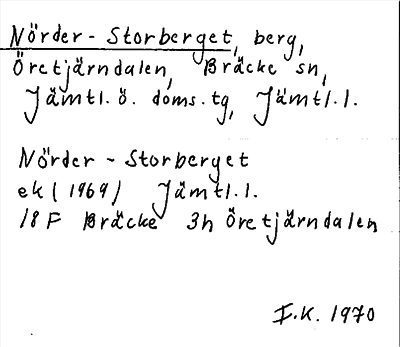 Nörder - Storberget, berg,
Öretjärndalen, Bräcke sn,
Jämtl. ö. doms. tg, Jämtl. l.
Nörder - Storberget
ek (1969) Jämtl. l.
18 F Bräcke 3h Öretjärndalen
I.K. 1970